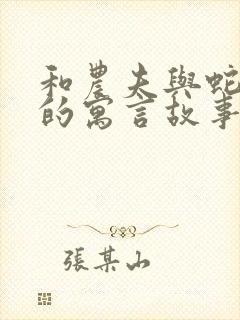 和農夫與蛇
的寓言故事
張某山